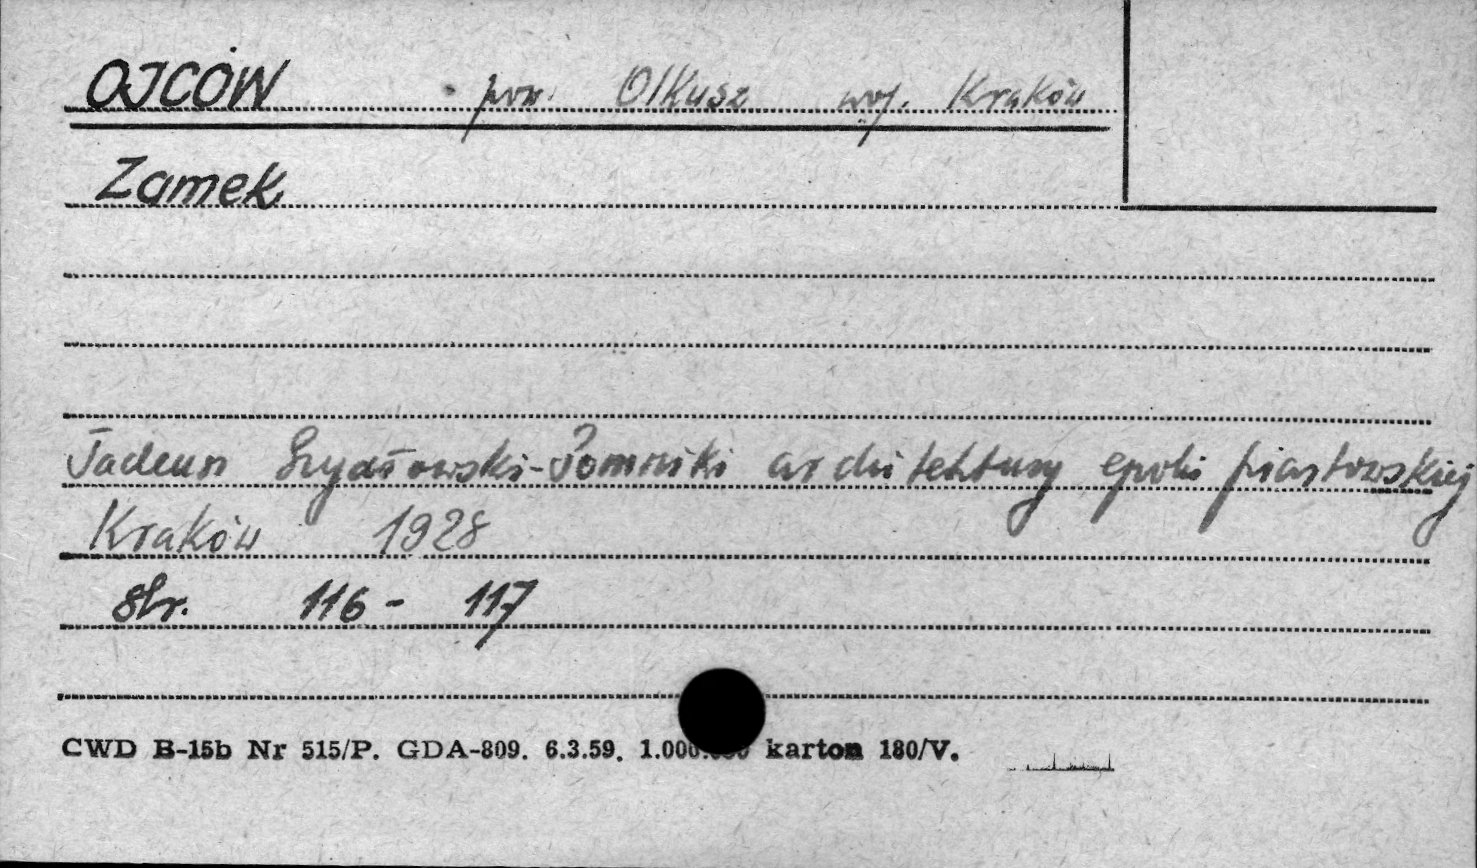 OJCÓW pow. Olkusz woj. Kraków
Zamek
Tadeusz Szydłowski - Pomniki architektury epoki piastowskiej
Kraków 1928
str. 116 - 117
CWD B-15b Nr 515/P. GDA-809. 6.3.59. 1.000.000 karton 180/V.